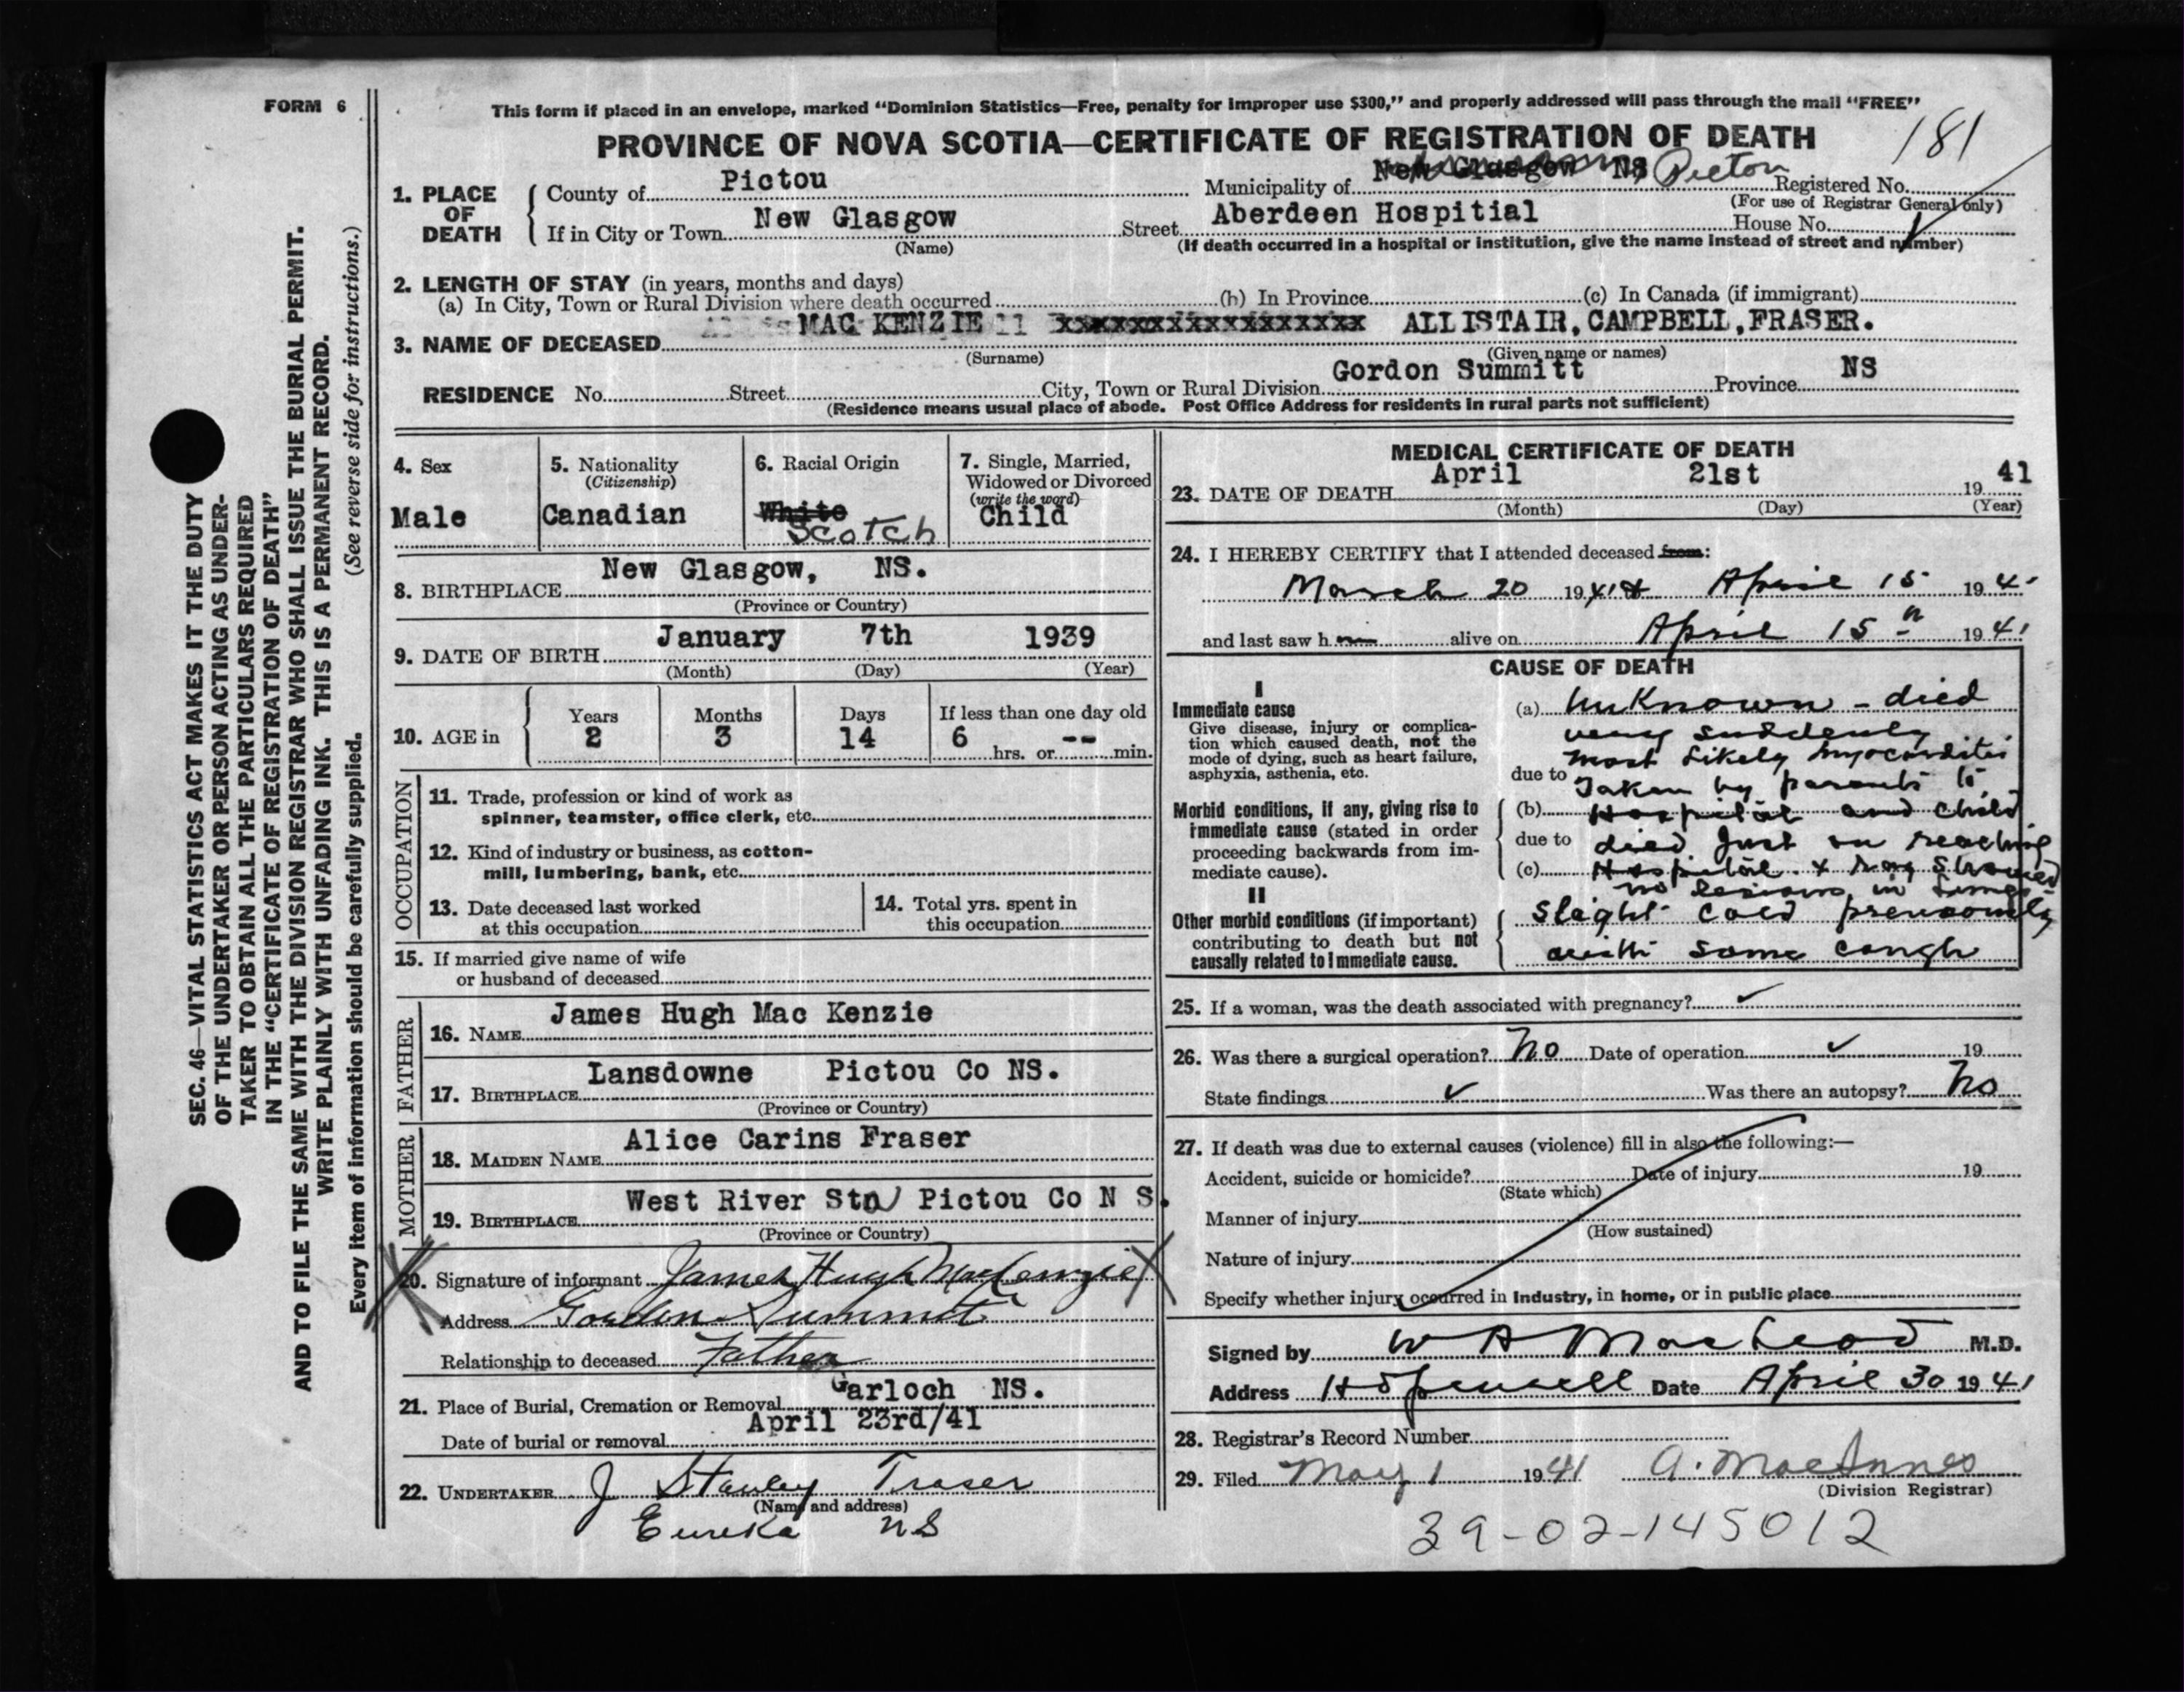 FORM 6
This form if placed in an envelope, marked “Dominion Statistics—Free, penalty for improper use $300,” and properly addressed will pass through the mail “FREE”
PROVINCE OF NOVA SCOTIA—CERTIFICATE OF REGISTRATION OF DEATH
181
1. PLACE OF DEATH
County of Pictou Municipality of New Glasgow NS Pictou Registered No.
(For use of Registrar General only)
If in City or Town New Glasgow Street Aberdeen Hospitial House No.
(Name) (If death occurred in a hospital or institution, give the name instead of street and number)
2. LENGTH OF STAY (in years, months and days)
(a) In City, Town or Rural Division where death occurred (h) In Province (c) In Canada (if immigrant)
3. NAME OF DECEASED MAC KENZIE xxxxxxxxxxxxxxxxxx ALLISTAIR, CAMPBELL, FRASER.
(Surname) (Given name or names)
RESIDENCE No. Street City, Town or Rural Division Gordon Summitt Province NS
(Residence means usual place of abode. Post Office Address for residents in rural parts not sufficient)
SEC. 46—VITAL STATISTICS ACT MAKES IT THE DUTY
OF THE UNDERTAKER OR PERSON ACTING AS UNDER-
TAKER TO OBTAIN ALL THE PARTICULARS REQUIRED
IN THE “CERTIFICATE OF REGISTRATION OF DEATH”
AND TO FILE THE SAME WITH THE DIVISION REGISTRAR WHO SHALL ISSUE THE BURIAL PERMIT.
WRITE PLAINLY WITH UNFADING INK. THIS IS A PERMANENT RECORD.
Every item of information should be carefully supplied. (See reverse side for instructions.)
4. Sex
Male
5. Nationality
(Citizenship)
Canadian
6. Racial Origin
White
Scotch
7. Single, Married,
Widowed or Divorced
(write the word)
Child
8. BIRTHPLACE New Glasgow, NS.
(Province or Country)
9. DATE OF BIRTH January 7th 1939
(Month) (Day) (Year)
10. AGE in
Years Months Days If less than one day old
2 3 14 6 hrs. or -- min.
OCCUPATION
11. Trade, profession or kind of work as
spinner, teamster, office clerk, etc.
12. Kind of industry or business, as cotton-
mill, lumbering, bank, etc.
13. Date deceased last worked
at this occupation
14. Total yrs. spent in
this occupation
15. If married give name of wife
or husband of deceased
FATHER
16. NAME James Hugh Mac Kenzie
17. BIRTHPLACE Lansdowne Pictou Co NS.
(Province or Country)
MOTHER
18. MAIDEN NAME Alice Carins Fraser
19. BIRTHPLACE West River Stn Pictou Co N S.
(Province or Country)
20. Signature of informant James Hugh MacKenzie
Address Gordon Summit
Relationship to deceased Father
21. Place of Burial, Cremation or Removal Garloch NS.
Date of burial or removal April 23rd/41
22. UNDERTAKER J Stanley Fraser
(Name and address)
Eureka NS
MEDICAL CERTIFICATE OF DEATH
23. DATE OF DEATH April 21st 19 41
(Month) (Day) (Year)
24. I HEREBY CERTIFY that I attended deceased from:
March 20 1941 & April 15 194
and last saw h im alive on April 15th 1941
CAUSE OF DEATH
I
Immediate cause
Give disease, injury or complica-
tion which caused death, not the
mode of dying, such as heart failure,
asphyxia, asthenia, etc.
(a) Unknown - died
very suddenly
most likely myocarditis
due to Taken by parents to
Morbid conditions, if any, giving rise to
immediate cause (stated in order
proceeding backwards from im-
mediate cause).
(b) Hospital and child
due to died just on reaching
(c) Hospital. X Ray showed
no lesions in lungs
II
Other morbid conditions (if important)
contributing to death but not
causally related to immediate cause.
Slight cold previously
with some cough
25. If a woman, was the death associated with pregnancy? ✓
26. Was there a surgical operation? No Date of operation ✓ 19
State findings ✓ Was there an autopsy? No
27. If death was due to external causes (violence) fill in also the following:—
Accident, suicide or homicide? Date of injury 19
(State which)
Manner of injury
(How sustained)
Nature of injury
Specify whether injury occurred in industry, in home, or in public place
Signed by W A MacLeod M.D.
Address Hopewell Date April 30 1941
28. Registrar's Record Number
29. Filed May 1 1941 A. MacInnes
(Division Registrar)
39-02-145012